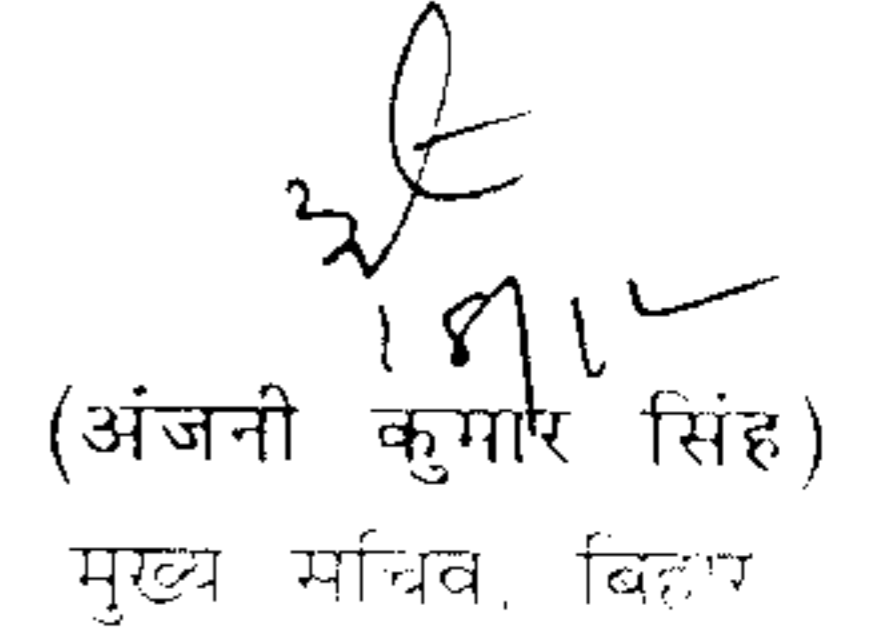 (अंजनी कुमार सिंह)
मुख्य सचिव, बिहार